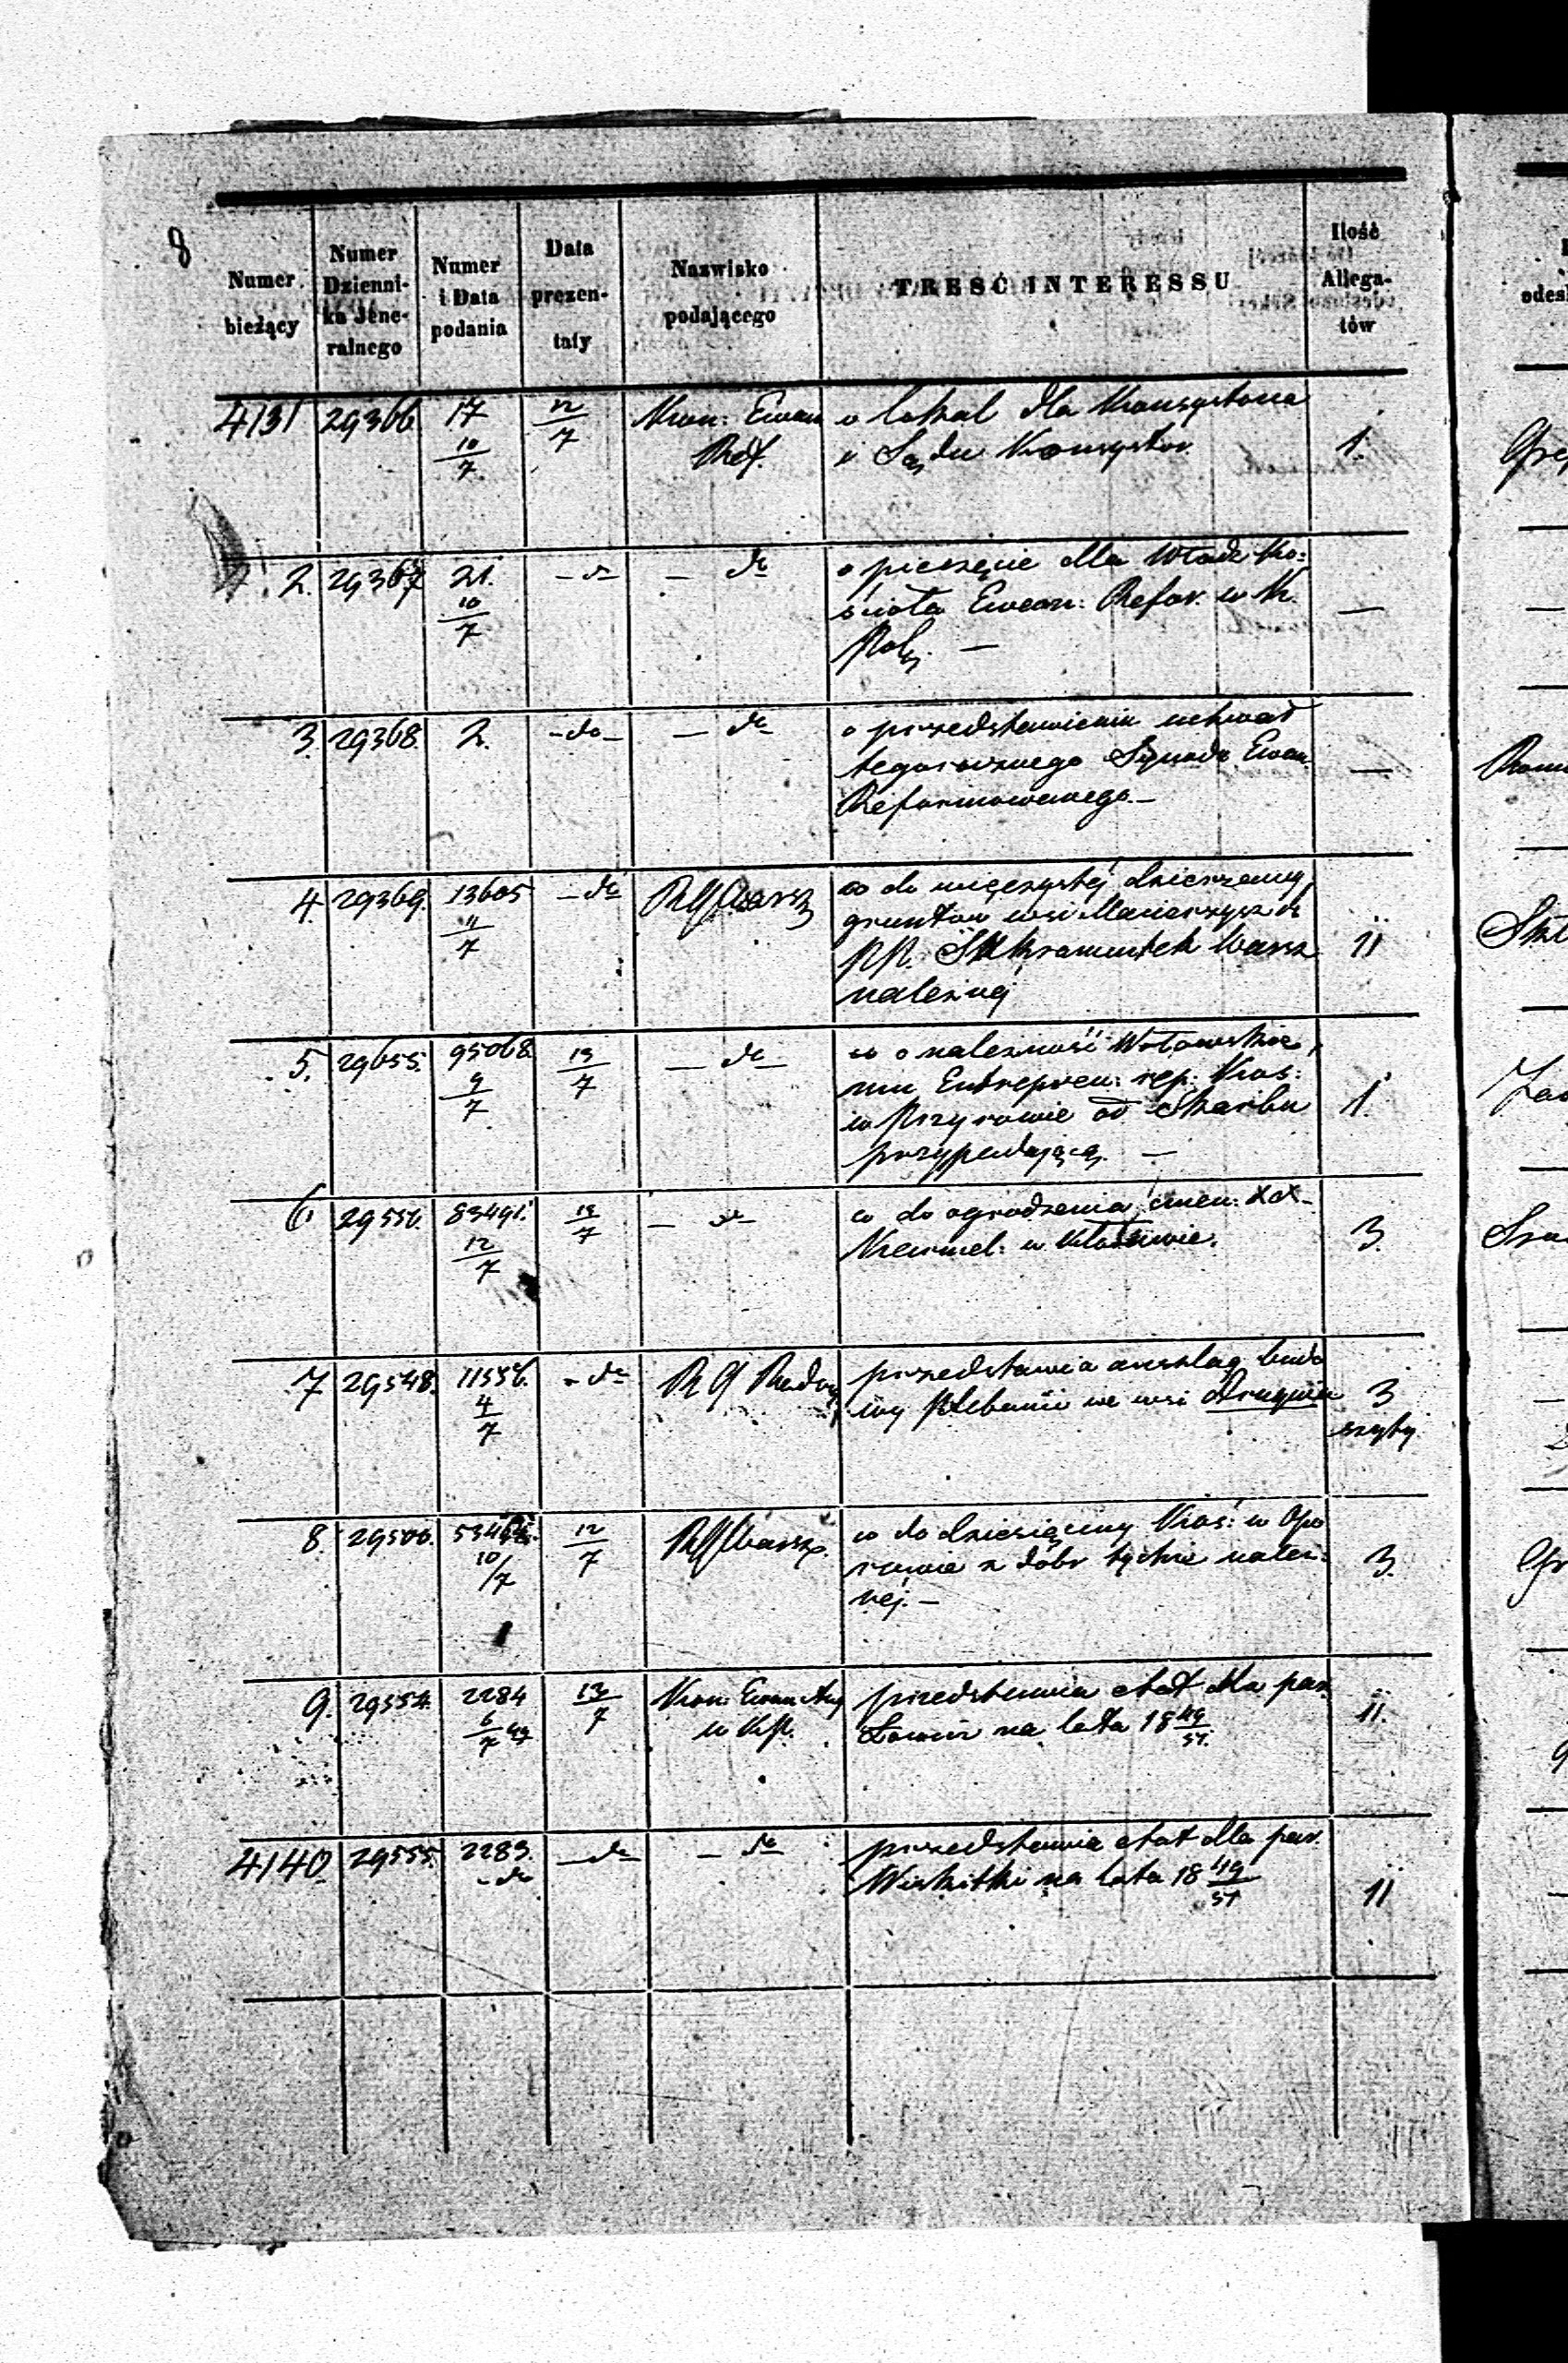 8
Numer bieżący
Numer Dzienni- ka Jene- ralnego
Numer i Data podania
Data prezen- taty
Nazwisko podającego
TREŚĆ INTERESSU
Ilość Allega- tów
4131 29366. 17 10/7 12/7 Kon: Ewan Ref. o lokal dla Konsystorza
i Sądu Konsystor. 1.
2. 29367 21. 10/7 - do - — do o pieczęcie dla Władz Ko:
ścioła Ewan: Refor. w K.
Pols. —
3. 29368. 2. - do - — do o przedstawieniu uchwał
tegorocznego Synodu Ewan
Reformowanego. — —
4. 29369. 13605 11/7 - do RGWarsz co do wieczystej dzierżawy
gruntów wsi Macierzysz
PP. Sakramentek Warsz
należnej 11
5. 29655. 95068. 9/7 13/7 — do co o należność
mu Entrepren: rep. Kos:
w Przyrowie od Skarbu
przypadającą. — 1.
6. 29556. 83491. 12/7 13/7 — do co do ogrodzenia cmen: XX.
Karmel: w Kłodawie. 3.
7 29548. 11556. 4/7 - do RG Radom przedstawia anszlag budo
wy Plebanii we wsi 3
szyty
8. 29506. 10/7 12/7 RGWarsz. co do dziesięciny Koś: w Opo
rowie z dóbr tychże należ:
nej. — 3.
9. 29554. 2284 6/7 49 13/7 Kon: Ewan Aug
w KP. przedstawia etat dla par.
Łowicz na lata 18 49/51. 11.
4140. 29555. 2283. - do — do — do przedstawia etat dla par.
Wiskitki na lata 18 49/51 11